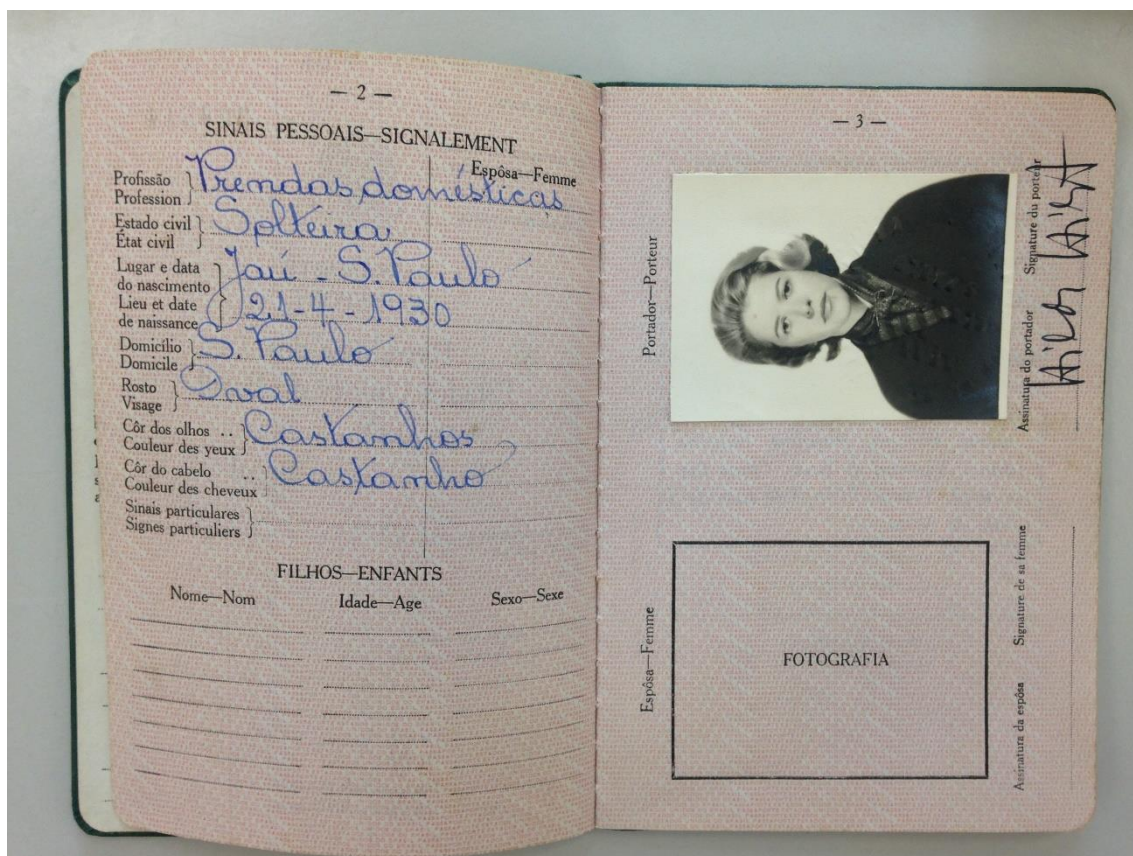 — 2 —
SINAIS PESSOAIS—SIGNALEMENT
Espôsa—Femme
Profissão
Profession
Prendas domésticas
Estado civil
État civil
Solteira
Lugar e data
do nascimento
Lieu et date
de naissance
Jaú - S. Paulo
21-4-1930
Domicílio
Domicile
S. Paulo
Rosto
Visage
Oval
Côr dos olhos ..
Couleur des yeux
Castanhos
Côr do cabelo ..
Couleur des cheveux
Castanho
Sinais particulares
Signes particuliers
FILHOS—ENFANTS
Nome—Nom Idade—Age Sexo—Sexe
— 3 —
Portador—Porteur
Assinatura do portador Signature du porteur
Hilda Hilst
Espôsa—Femme
FOTOGRAFIA
Assinatura da espôsa Signature de sa femme